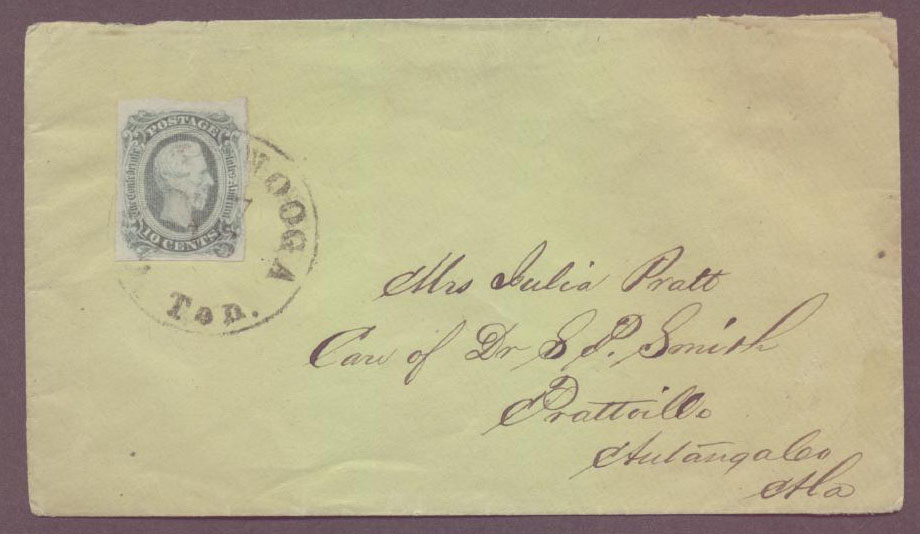 POSTAGE
The Confederate States of America
10 CENTS
NOOGA
Ten.
Mrs Julia Pratt
Care of Dr S P. Smith
Prattville
Autauga Co
Ala